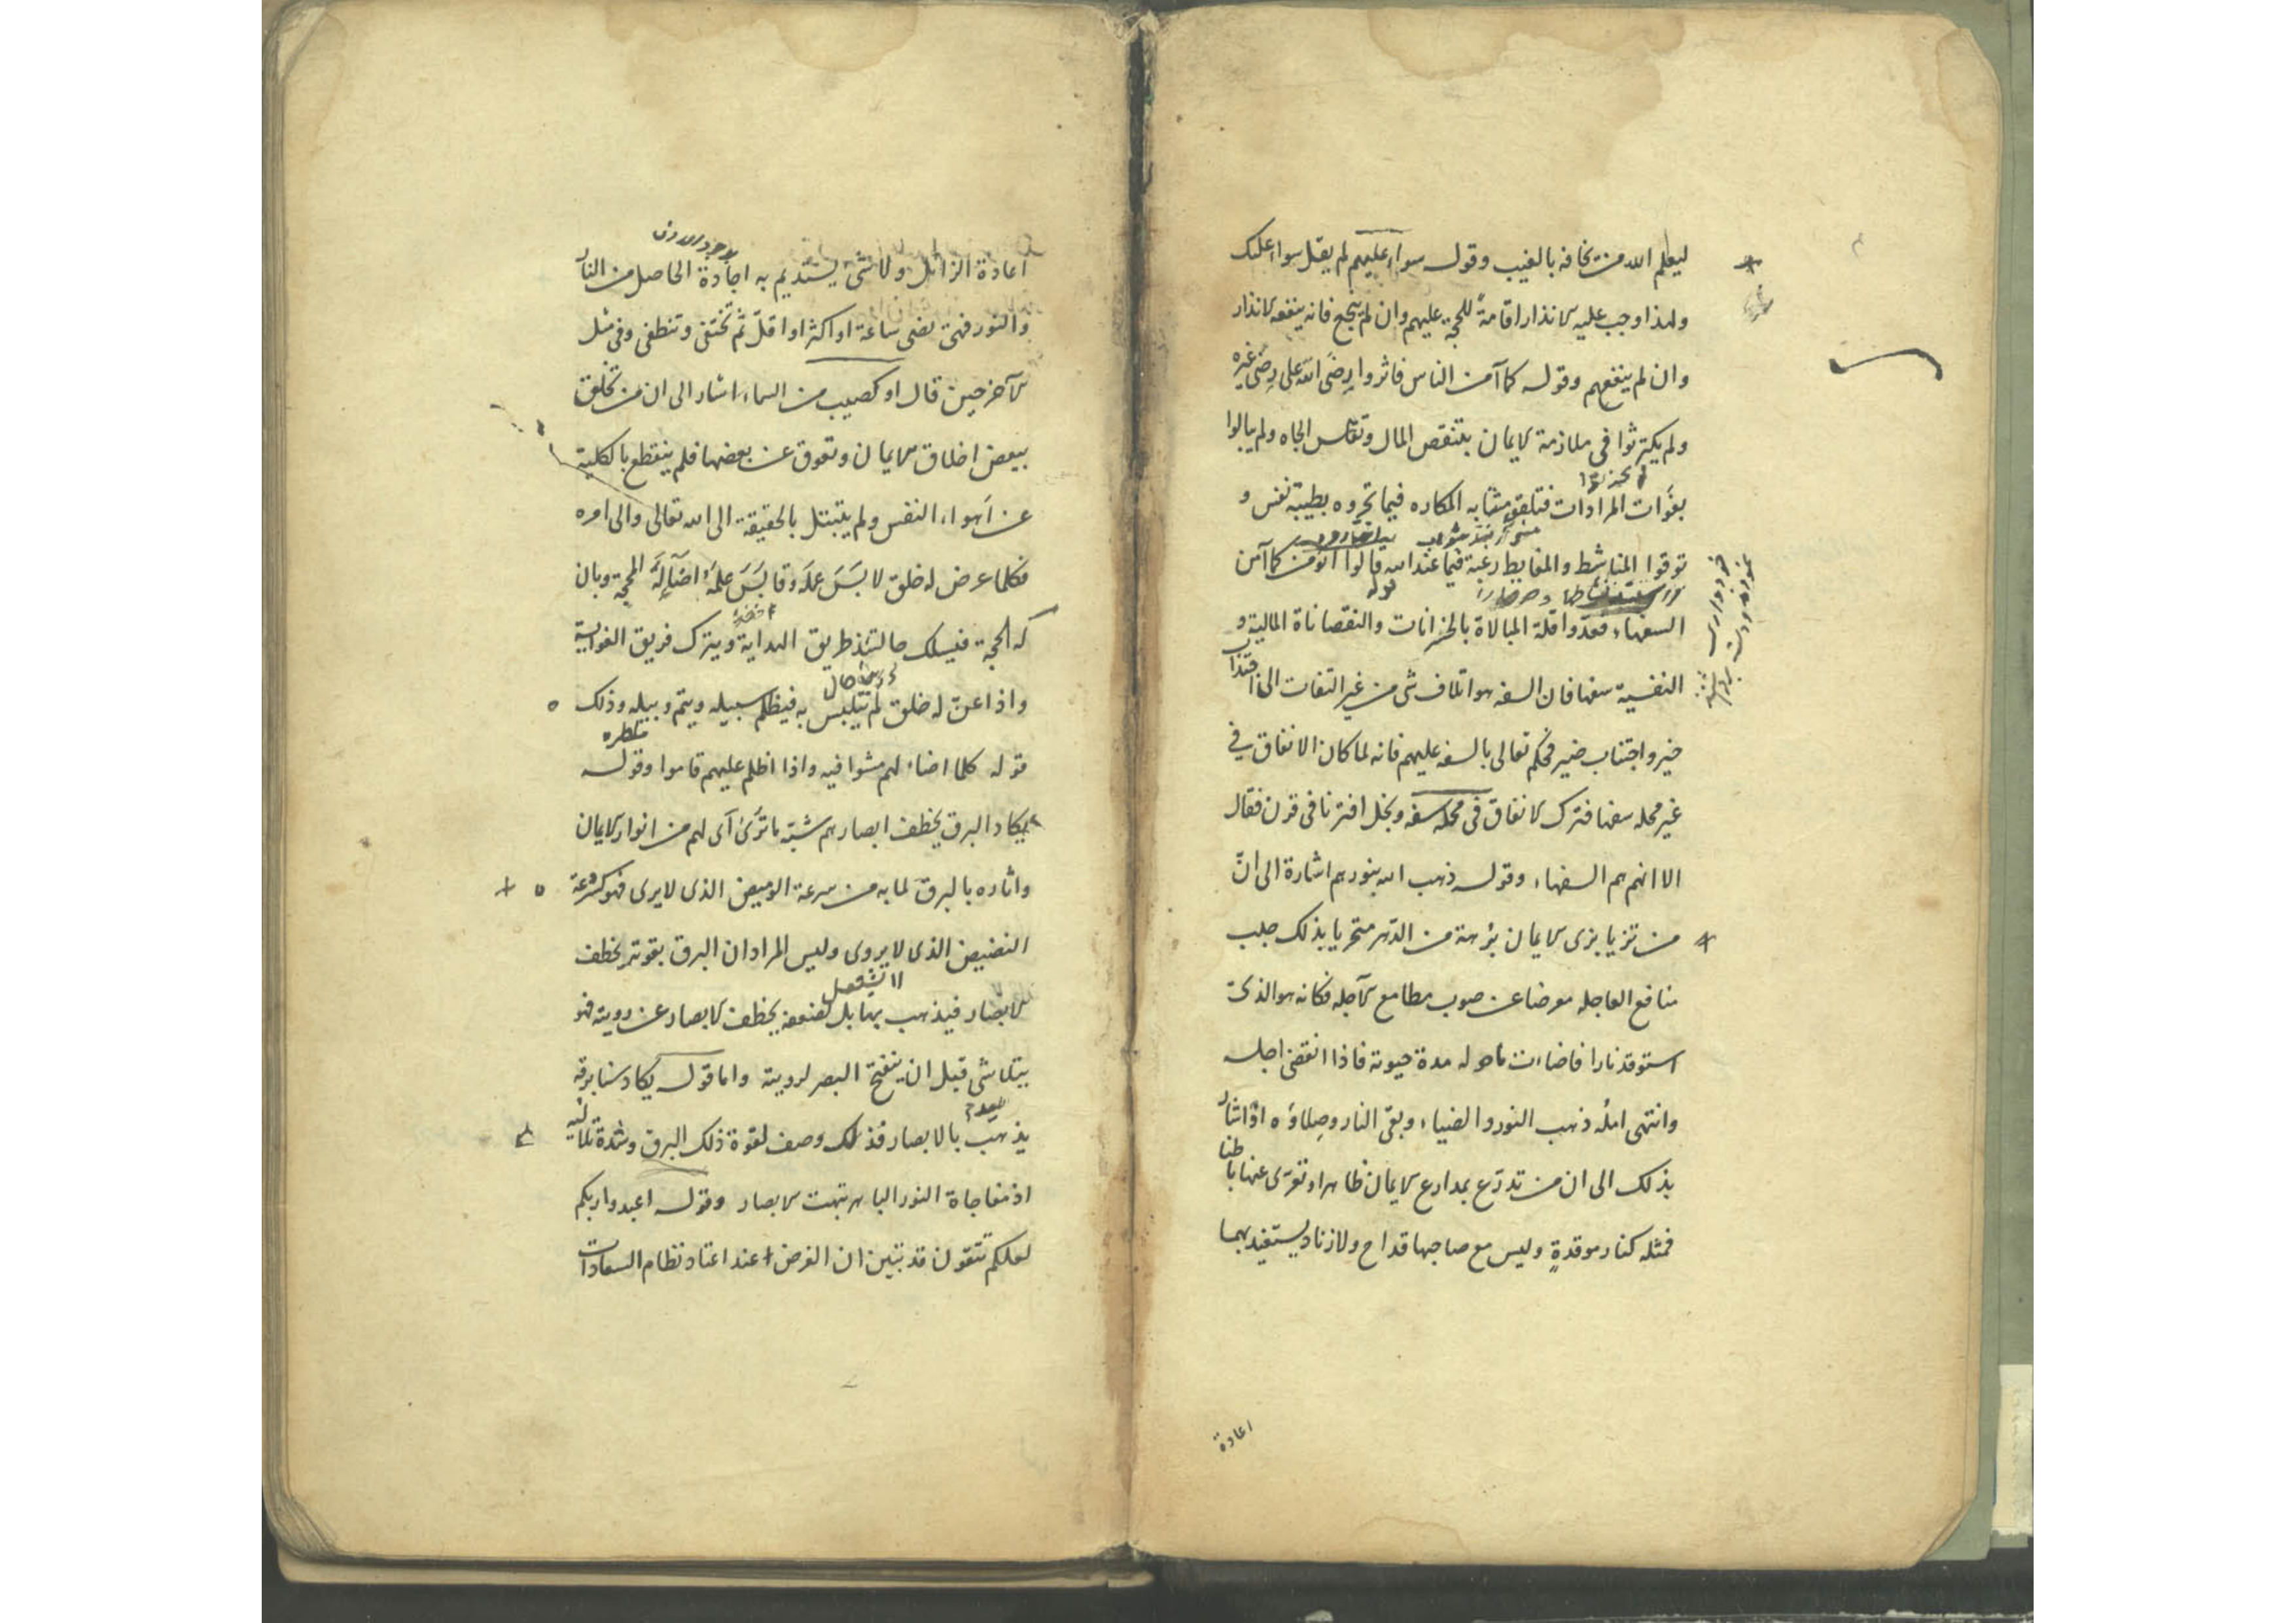 ليعلم الله من يخافه بالغيب وقوله سواء عليهم لم يقل سواء عليك
ولهذا وجب عليه الانذار اقامةً للحجة عليهم وان لم ينجع فانه ينفعه الانذار
وان لم ينفعهم وقوله كما آمن الناس فاثروا رِضَى الله على رِضَى غيره
ولم يكترثوا في ملازمة الايمان بتنقص المال وتقلس الجاه ولم يبالوا
بفوات المرادات فتلقو مشابه المكاره فيما تحروه بطيبة نفس و
توقوا المناشط والمغابط رغبة فيما عند الله قالوا انؤمن كما آمن
السفهاء فعدّوا قلة المبالاة بالخسرانات والنقصاناة المالية و
النفسية سفها فان السفه هو اتلاف شئ من غير التفات الى اقتناء
خير واجتناب ضير فحكم تعالى بالسفه عليهم فانه لما كان الانفاق في
غير محله سفها فترك الانفاق في محله سفه وبخل اقترنا في قرن فقال
الا انهم هم السفهاء وقوله ذهب الله بنورهم اشارة الى انّ
من تزيا بزى الايمان برهة من الدّهر متحريا بذلك جلب
منافع العاجله معرضا عن صوب مطامع الآجله فكانه هو الذى
استوقد نارا فاضاءت ما حوله مدة حيوته فاذا انقضى اجله
وانتهى امله ذهب النور والضياء وبقى النار وصِلاؤه اذ اشار
بذلك الى ان من تدرّع بمدارع الايمان ظاهرا وتعرّى عنها باطنا
فمثله كنار موقدةٍ وليس مع صاحبها قداح ولا زناد يستفيد بهما
اعادة
اعادة الزائل ولا شئ يستديم به اجادة الحاصل من النار
والنور فهى تضى ساعة او اكثر او اقلّ ثم تختفى وتنطفى وفى مثل
الآخرين قال او كصيب من السماء اشار الى ان من تخلق
ببعض اخلاق الايمان وتعوق عن بعضها فلم ينقطع بالكلية
عن اهواء النفس ولم يتبتل بالحقيقة الى الله تعالى والى امره
فكلما عرض له خلق لابَسَ عمله وقابَسَ علمه اضآء له المحجة وبان
له الحجة فيسلك حالتئذ طريق الهداية ويترك فريق الغواية
واذا عنّ له خلق لم يتلبس به فيظلم سبيله ويتم وبيله وذلك
قوله كلما اضاء لهم مشوا فيه واذا اظلم عليهم قاموا وقوله
يكاد البرق يخطف ابصارهم شبّه ما ترآى لهم من انوار الايمان
واثاره بالبرق لما به من سرعة الوميض الذى لا يرى فهو كسرعة
النضيض الذى لا يروى وليس المراد ان البرق بقوته يخطف
الابصار فيذهب بها بل لضعفه يخطف الابصار عن رويته فهو
يتلاشى قبل ان ينفتح البصر لرويته واما قوله يكاد سنا برقه
يذهب بالابصار فذلك وصف لقوة ذلك البرق وشدة تلاليه
اذ مفاجاة النور الباهر تبهت الابصار وقوله اعبدوا ربكم
لعلكم تتقون قد تبين ان الغرض عند اعتاد نظام السعادات